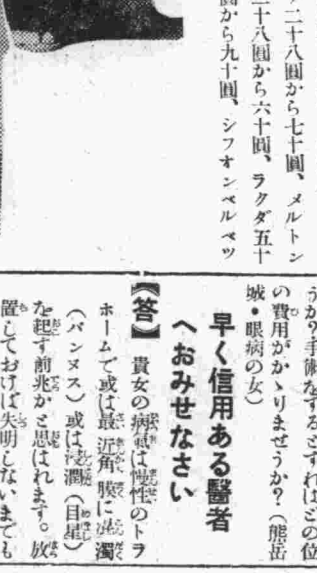 二十八圓から七十圓、メルトン
二十八圓から六十圓、ラクダ五十
圓から九十圓、シフオンベルベツ
うか?手術をするとすればどの位
の費用がかゝりませうか?(熊岳
城・眼病の女)
早く信用ある醫者
へおみせなさい
【答】 貴女の病氣は慢性のトラ
ホームで或は最近角膜に溷濁
(パンヌス)或は浸潤(目星)
を起す前兆かと思はれます。放
置しておけば失明しないまでも